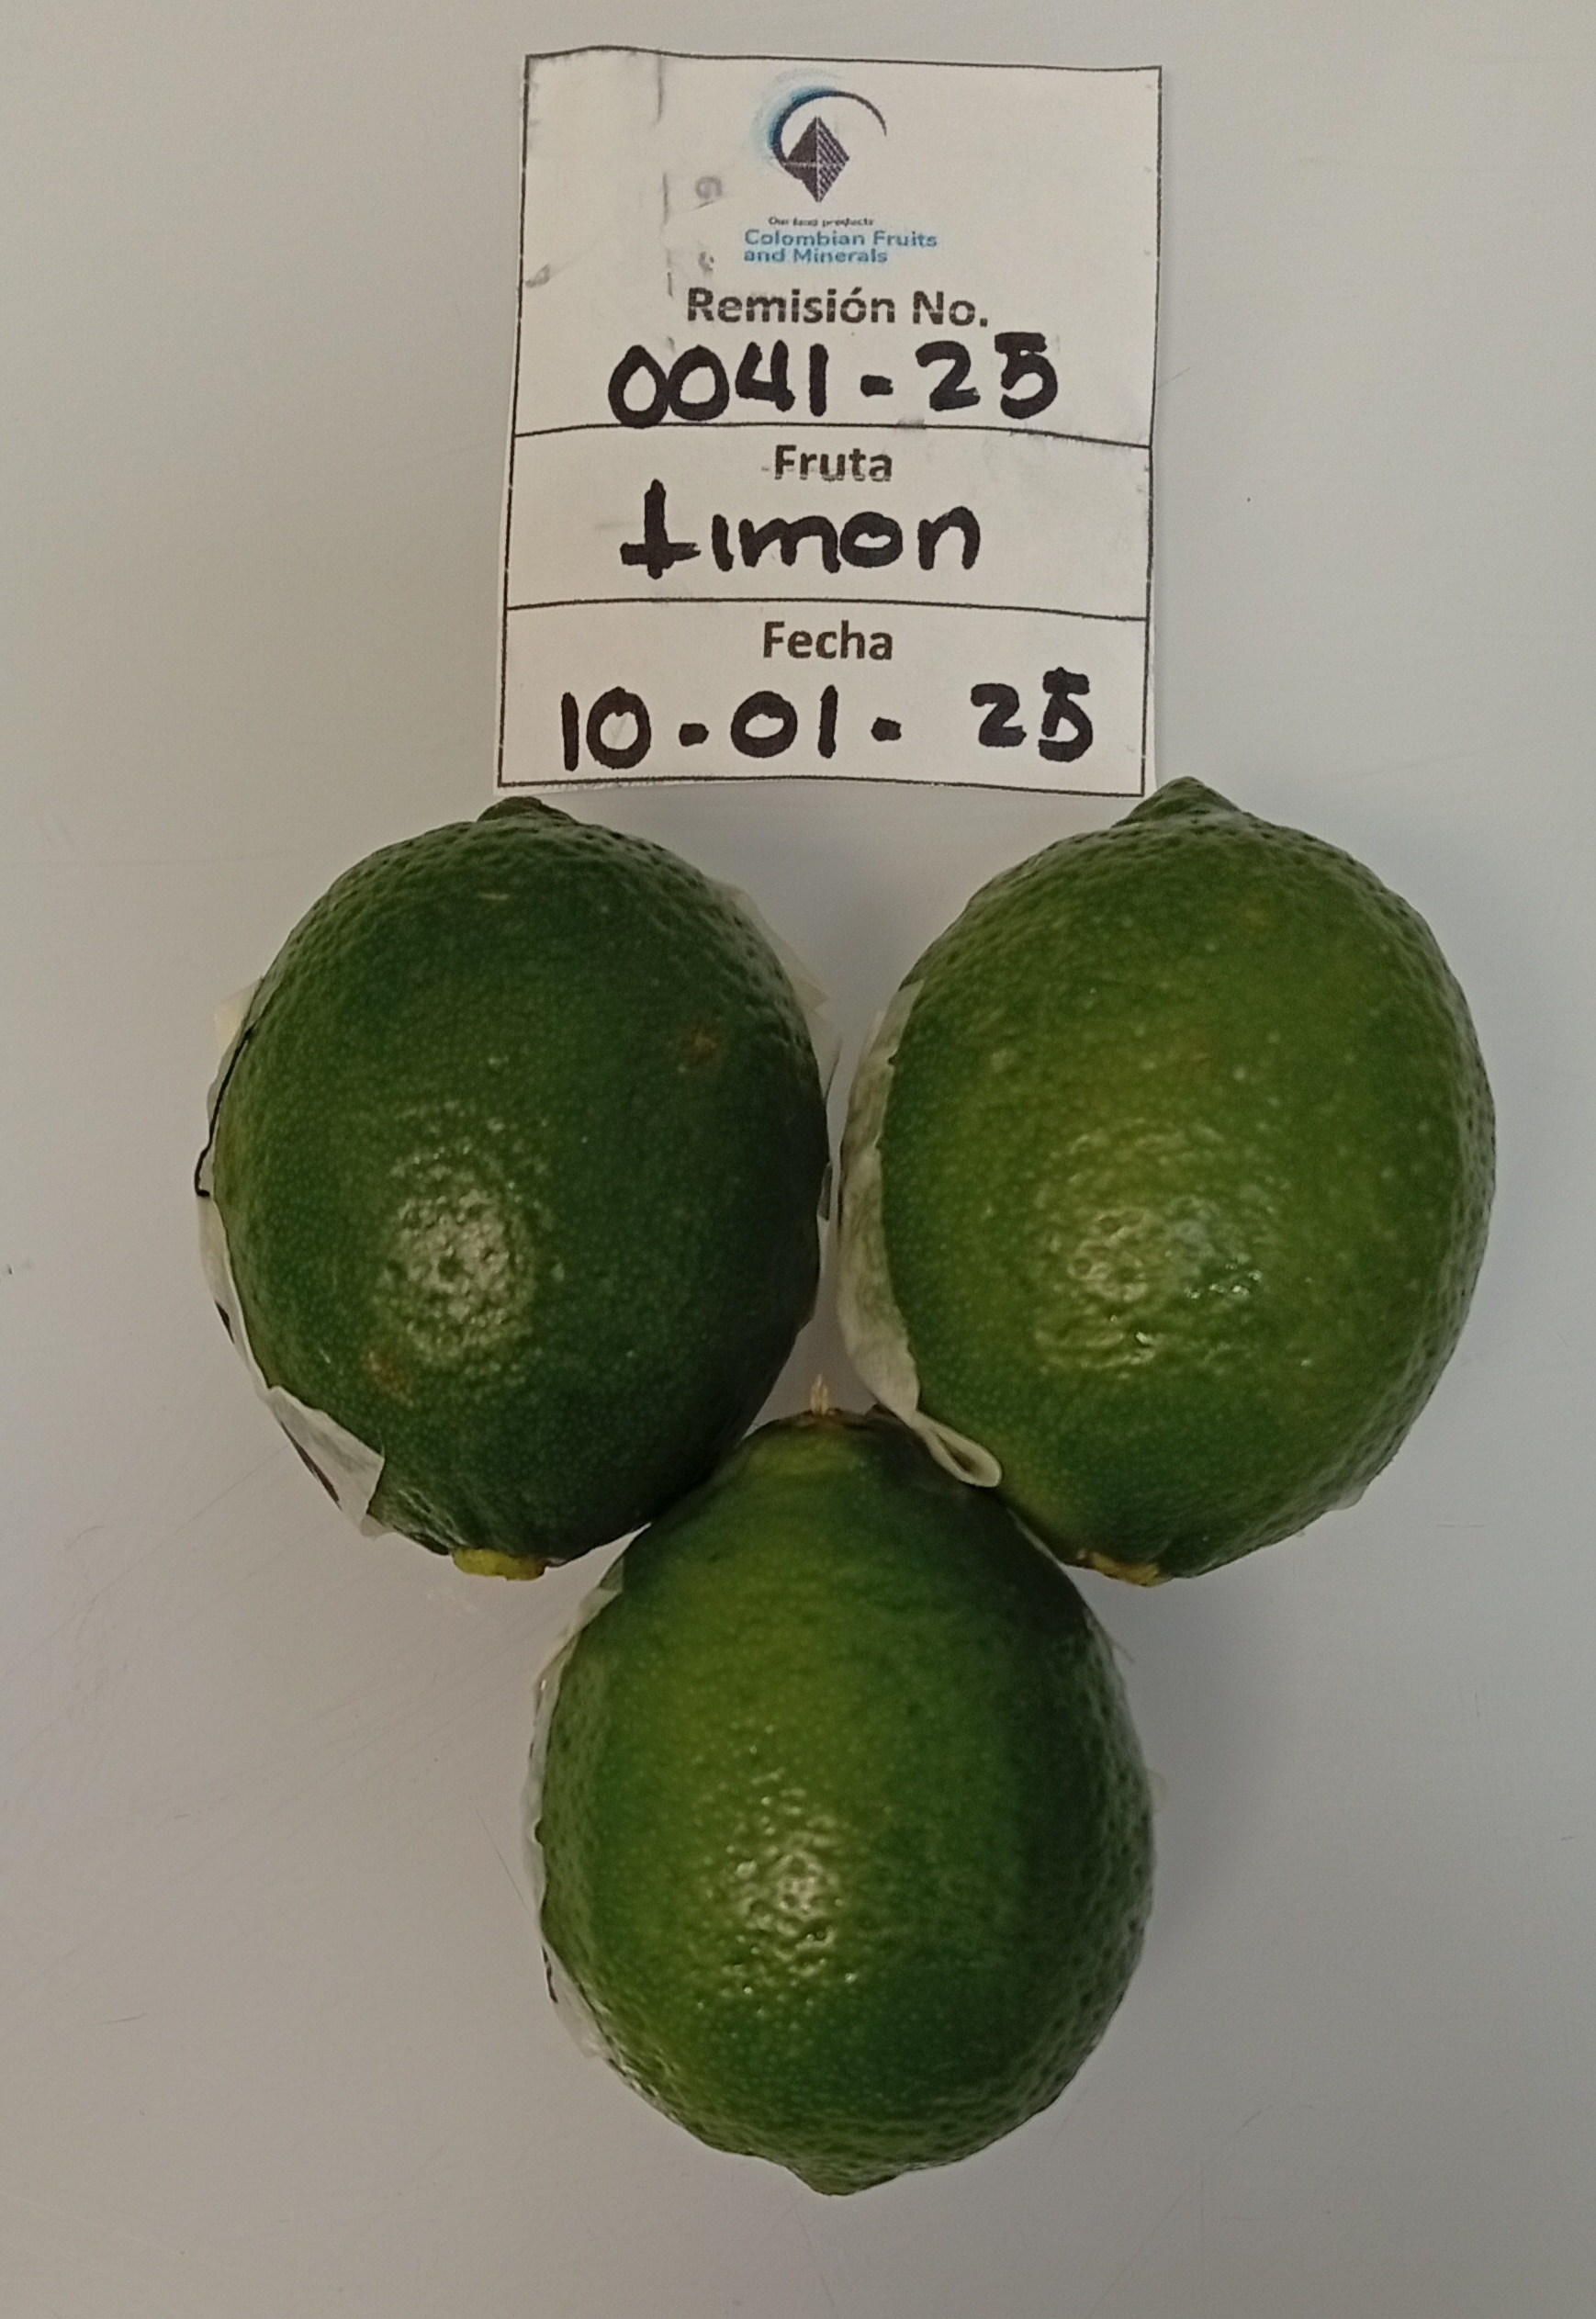 Our best products
Colombian Fruits
and Minerals
Remisión No.
0041-25
Fruta
Limon
Fecha
10-01-25